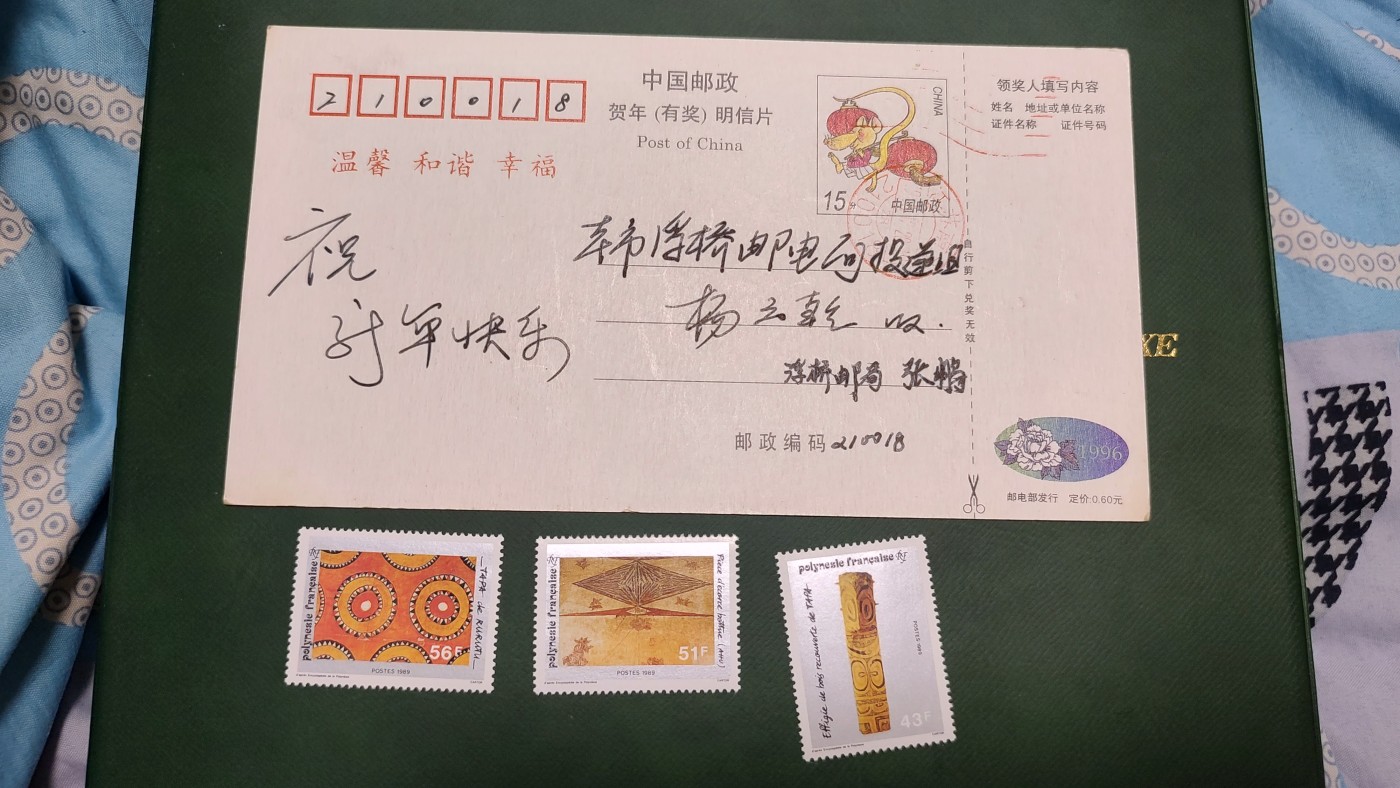 210018
中国邮政
贺年(有奖)明信片
Post of China
温馨 和谐 幸福
CHINA
15分
中国邮政
领奖人填写内容
姓名 地址或单位名称
证件名称 证件号码
祝
新年快乐
浮桥邮电局投递组
杨云乾 收.
浮桥邮局 张鹏
邮政编码210018
自行剪下兑奖无效
1996
邮电部发行 定价:0.60元
XE
polynésie française
TAPA de RURUTU
56F
POSTES 1989
polynésie française
Pièce d'écorce battue (AHU)
51F
POSTES 1989
polynésie française
Effigie de bois recouverte de TAPA
43F
POSTES 1989